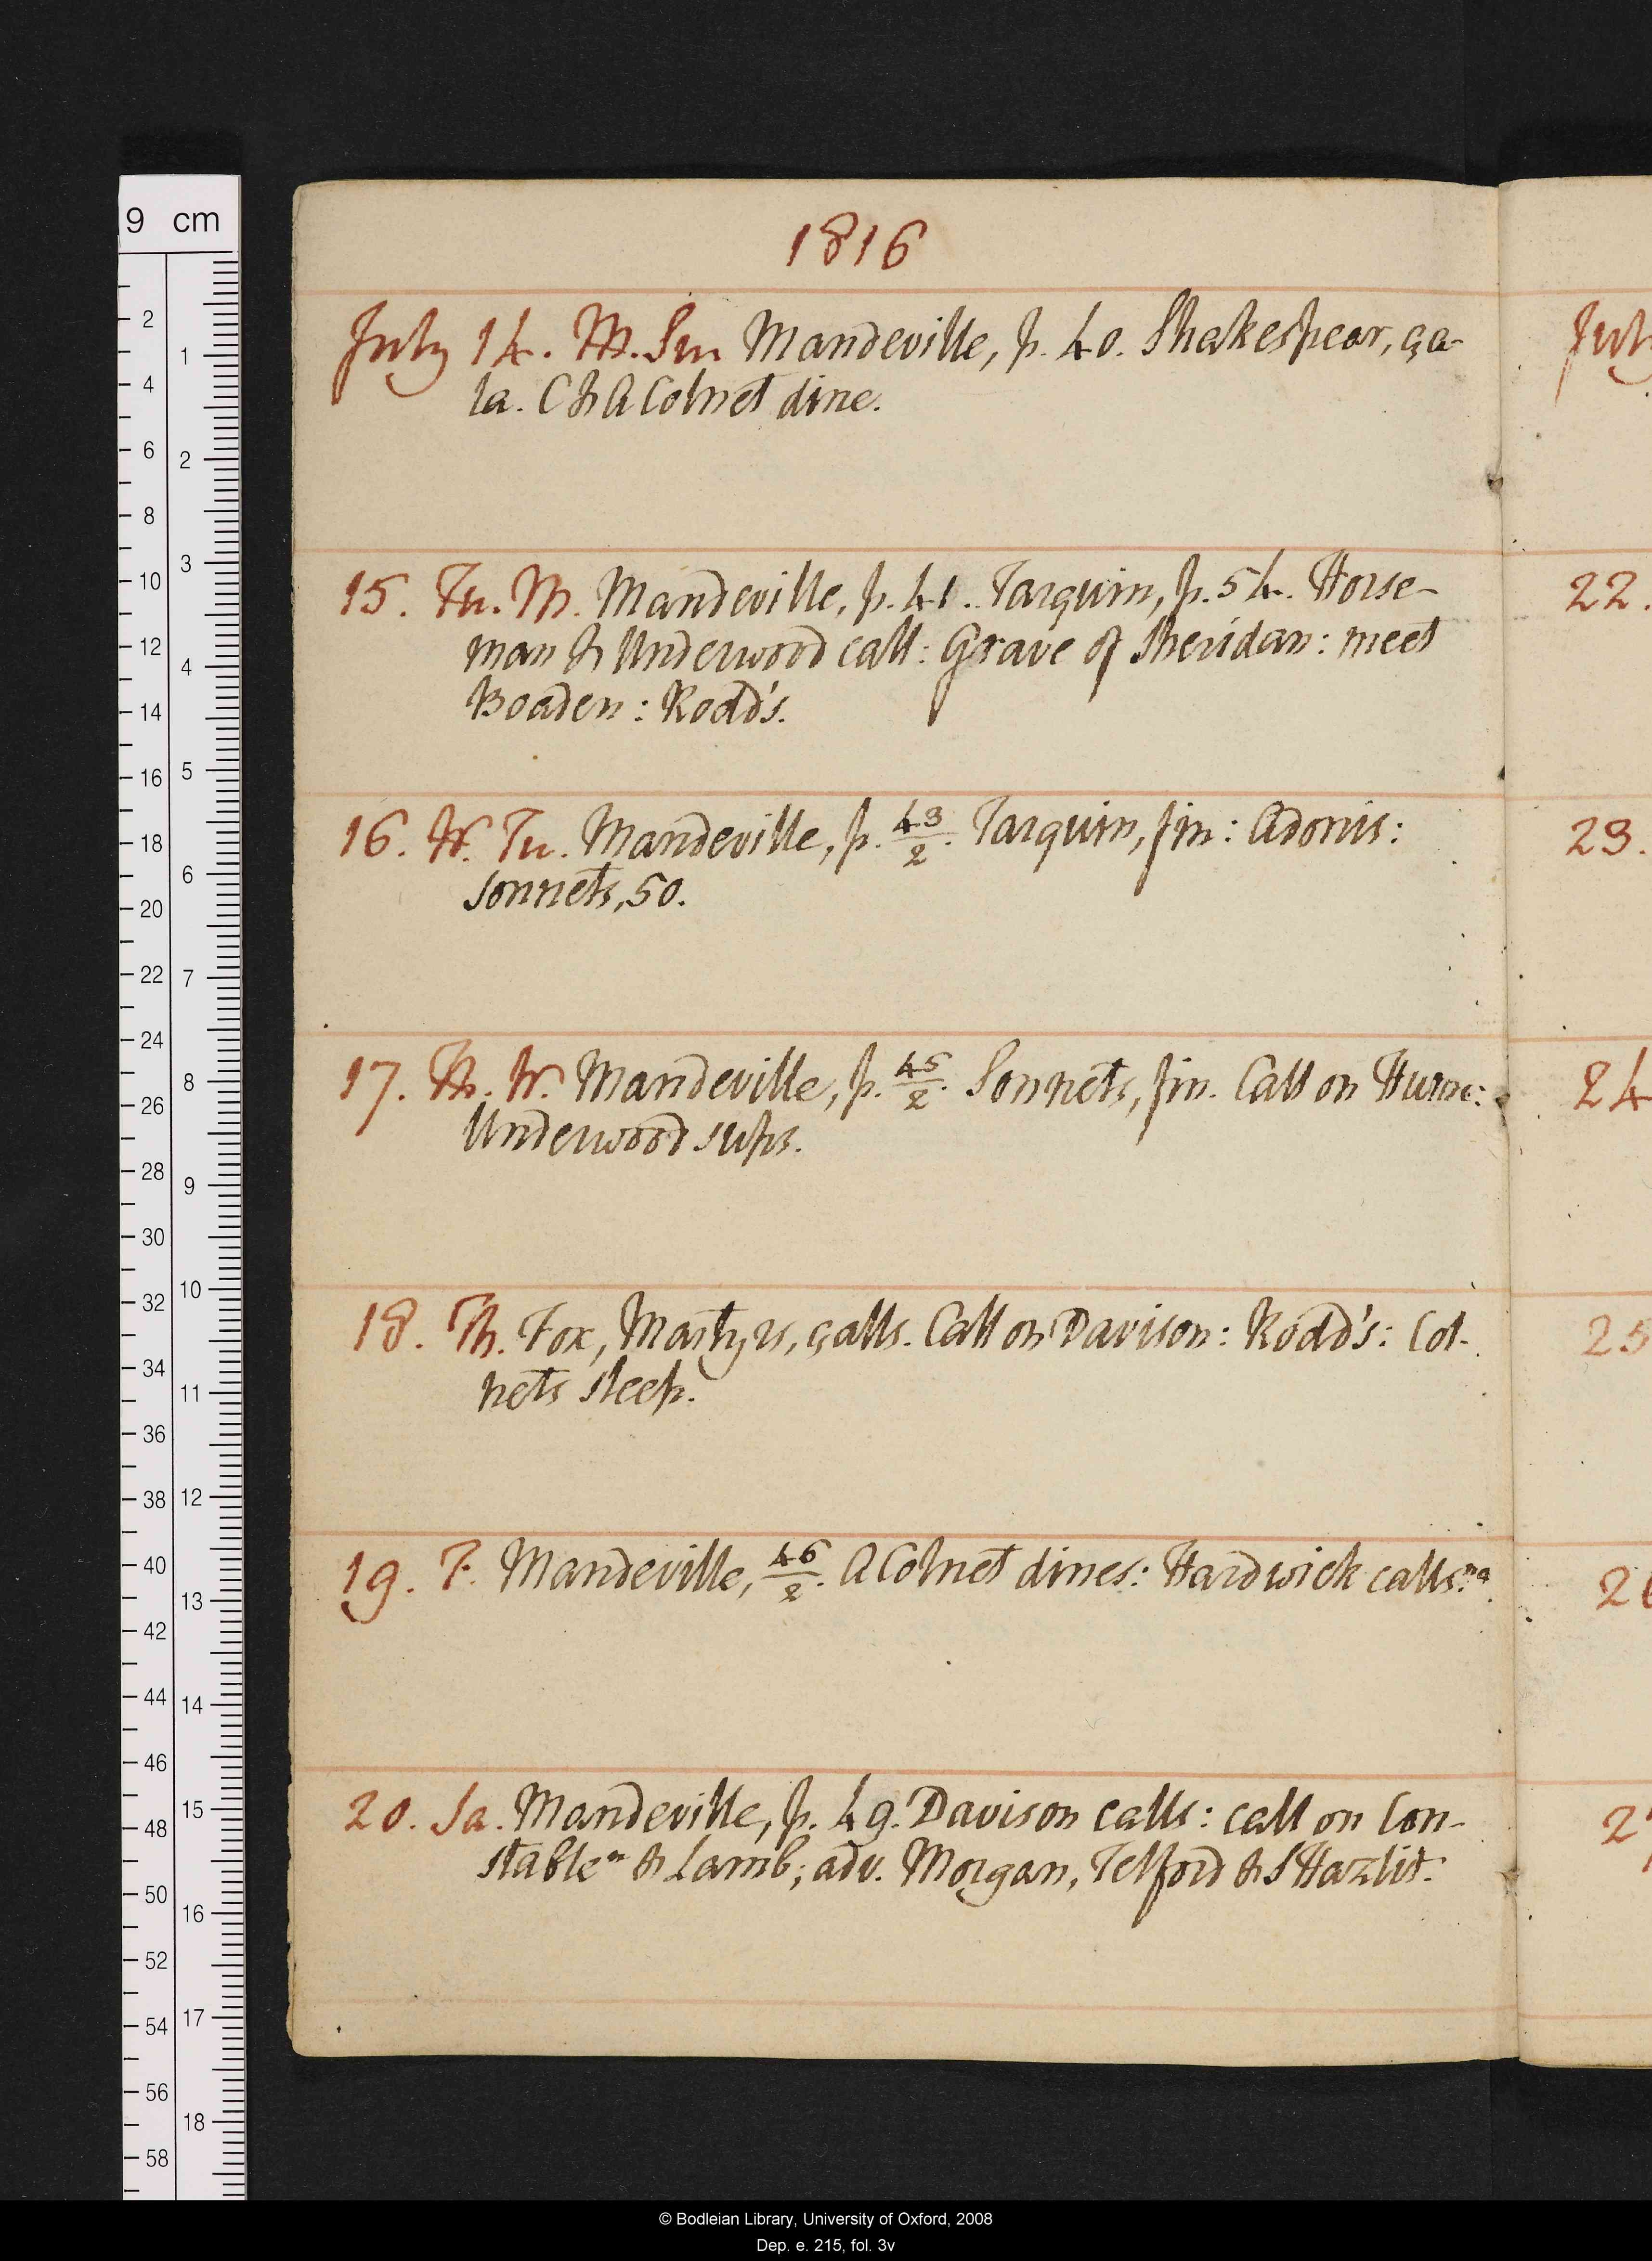 1816
July 14. M. Su. Mandeville, p. 40. Shakespear, ça-
la. C & A Colnet dine.
15. Tu. M. Mandeville, p. 41. Tarquin, p. 54. Horse-
man & Underwood call: Grave of Sheridan: meet
Boaden: Rodd's.
16. W. Tu. Mandeville, p. 43/2. Tarquin, fin: Adonis:
Sonnets, 50.
17. Th. W. Mandeville, p. 45/2. Sonnets, fin. Call on Hume:
Underwood sups.
18. Th. Fox, Martyrs, çalls. Call on Davison: Rodd's: Col-
nets sleep.
19. F. Mandeville, 46/2. A Colnet dines: Hardwick calls na.
20. Sa. Mandeville, p. 49. Davison calls: call on Con-
stable n & Lamb; adv. Morgan, Telford & S Hazlit.
July
22.
23.
24
25
9 cm
2
4
6
8
10
12
14
16
18
20
22
24
26
28
30
32
34
36
38
40
42
44
46
48
50
52
54
56
58
1
2
3
4
5
6
7
8
9
10
11
12
13
14
15
16
17
18
© Bodleian Library, University of Oxford, 2008
Dep. e. 215, fol. 3v